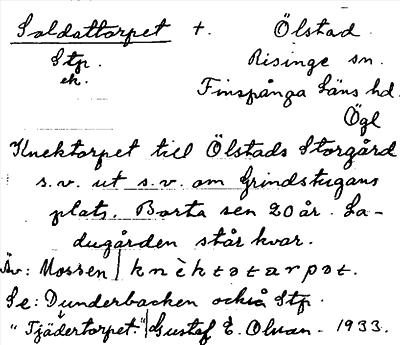 Soldattorpet t. Ölstad.
Stp. Risinge sn.
ek. Finspånga läns hd.
Ögl
Knektorpet till Ölstads Storgård
s.v. ut s.v. om Grindstugans
plats. Borta sen 20 år. La-
dugården står kvar.
Äv: Mossen | knèktətarpət.
Se: Dunderbacken också Stp.
" Tjädertorpet." | Gustaf E. Olman - 1933.